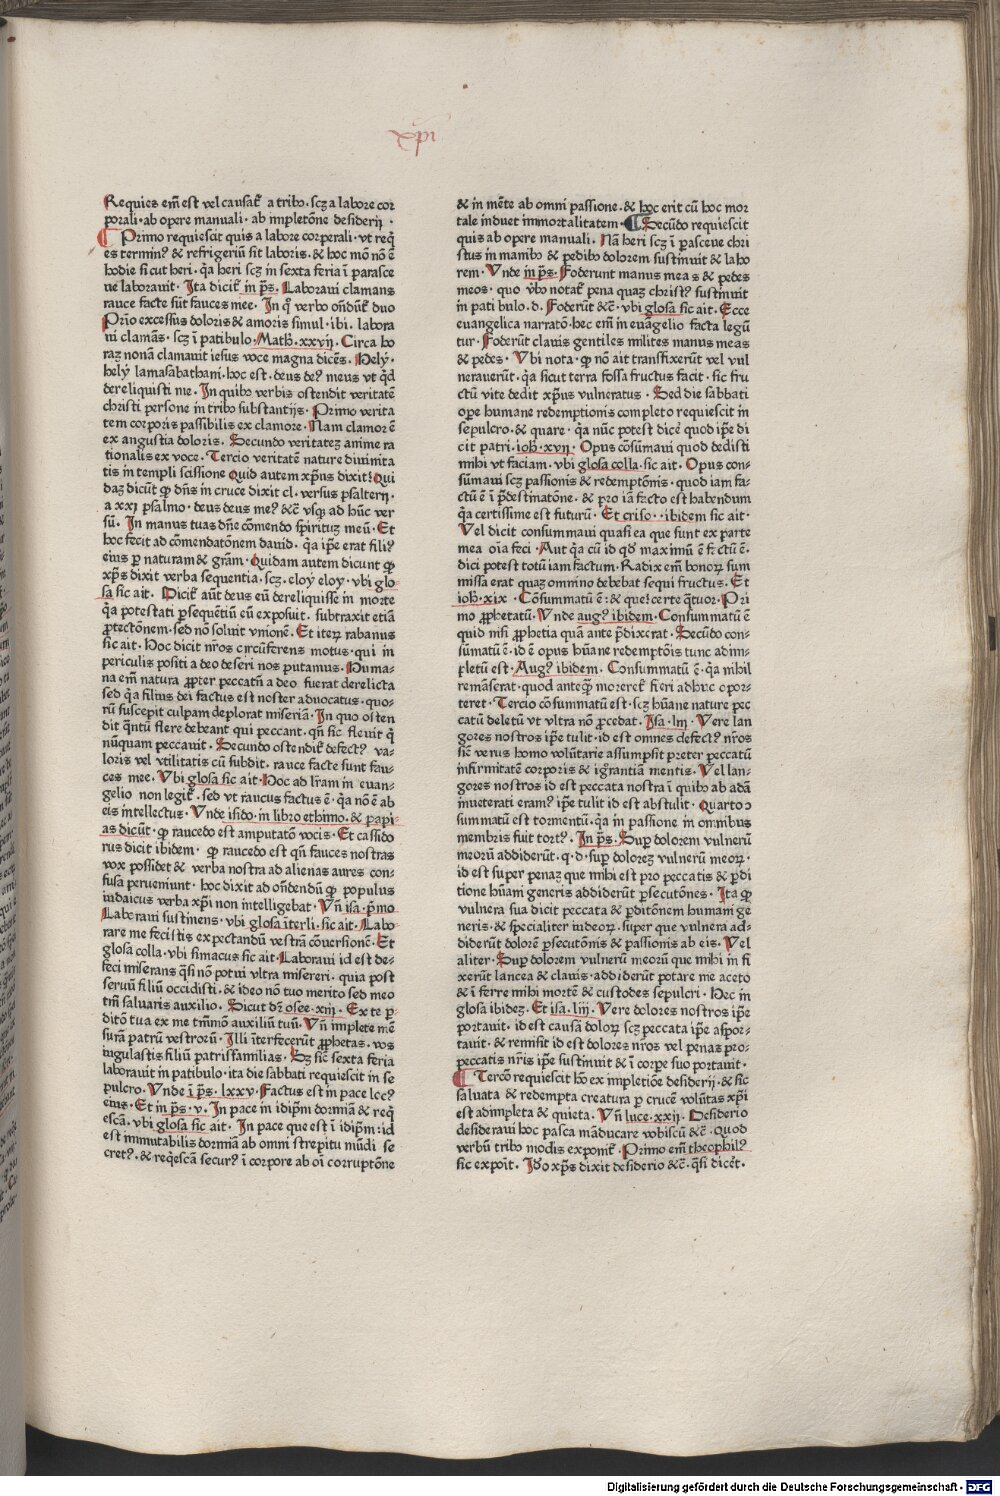 xp̄i
Requies em̄ est vel causat᷑ a tribꝰ. scꝫ a labore cor
porali · ab opere manuali · ab impletōne desiderij ·
¶ Primo requiescit quis a labore corporali · vt req̄
es terminꝰ & refrigeriū sit laboris · & hoc mō nō ē
hodie sicut heri · q̄a heri scꝫ in sexta feria ī parasce
ue laborauit · Ita dicit᷑ in p̄s. Laboraui clamans
rauce facte sūt fauces mee · In qͦ verbo on̄dūt᷑ duo
Prīo excessus doloris & amoris simul · ibi · labora
ui clamās · scꝫ ī patibulo · Math · xxvij · Circa ho
raꝫ nonā clamauit iesus voce magna dicēs · Hely ·
hely lamasabathani · hoc est · deus deꝰ meus vt qͥd
dereliquisti me · In quibꝰ verbis ostendit veritatē
christi persone in tribꝰ substantijs · Primo verita
tem corporis passibilis ex clamore · Nam clamor ē
ex angustia doloris · Secundo veritateꝫ anime ra
tionalis ex voce · Tercio veritatē nature diuinita
tis in templi scissione Quid autem xp̄us dixit? Qui
daꝫ dicūt ꝙ dn̄s in cruce dixit cl · versus psalterij ·
a xxi psalmo · deus deus meꝰ &c̄ vsqꝫ ad hūc ver
sū · In manus tuas dn̄e cōmendo spiritūꝫ meū · Et
hoc fecit ad cōmendatōnem dauid · q̄a ip̄e erat filiꝰ
eius ꝑ naturam & grām · Quidam autem dicunt ꝙ
xp̄s dixit verba sequentia · scꝫ · eloy eloy · vbi glo
sa sic ait · Dicit᷑ aūt deus eū dereliquisse in morte
q̄a potestati ꝑsequentiū eū exposuit · subtraxit etiā
ꝓtectōnem · sed nō soluit vnionē · Et iteꝝ rabanus
sic ait · Hoc dicit nr̄os circūferens motus · qui in
periculis positi a deo deseri nos putamus · Huma-
na em̄ natura ꝓpter peccatū a deo fuerat derelicta
sed q̄a filius dei factus est noster aduocatus · quo-
rū suscepit culpam deplorat miseriā · In quo osten
dit qͣntū flere debeant qui peccant · qn̄ sic fleuit qͥ
nūquam peccauit · Secundo ostendit᷑ defectꝰ va-
loris vel vtilitatis cū subdit · rauce facte sunt fau-
ces mee · Vbi glosa sic ait · Hoc ad lr̄am in euan-
gelio non legit᷑ · sed vt raucus factus ē · q̄a nō ē ab
eis intellectus · Vnde isido · in libro ethimo · & papi-
as dicūt · ꝙ raucedo est amputatō vocis · Et cassido
rus dicit ibidem · ꝙ raucedo est qn̄ fauces nostras
vox possidet & verba nostra ad alienas aures con-
fusa perueniunt · hoc dixit ad on̄dendū ꝙ populus
iudaicus verba xp̄i non intelligebat · Vn̄ isa · p̄mo
Laboraui sustinens · vbi glosa īterli · sic ait · Labo-
rare me fecistis expectandū vestrā cōuersionē · Et
glosa colla · vbi simacus sic ait · Laboraui id est de-
feci miserans q̄si nō potui vltra misereri · quia post
seruū filiū occidisti · & ideo nō tuo merito sed meo
tm̄ saluaris auxilio · Sicut dr̄ osee · xiij · Ex te ꝑ-
ditō tua ex me tm̄mō auxiliū tuū · Vn̄ implete mē
surā patrū vestrorū · Illi īterfecerūt ꝓphetas · vos
iugulastis filiū patrisfamilias · Sꝫ sic sexta feria
laborauit in patibulo · ita die sabbati requiescit in se
pulcro · Vnde ī p̄s · lxxv · Factus est in pace locꝰ
eius · Et in p̄s · v · In pace in idip̄m dormiā & req̄
escā · vbi glosa sic ait · In pace que est ī idip̄m · id
est immutabilis dormiā ab omni strepitu mūdi se
cretꝰ · & req̄escā securꝰ ī corpore ab oī corruptōne
& in mēte ab omni passione · & hoc erit cū hoc mor
tale induet immortalitatem · ¶ Secūdo requiescit
quis ab opere manuali · Nā heri scꝫ ī ꝑasceue chri
stus in manibꝰ & pedibꝰ dolorem sustinuit & labo
rem · Vnde in p̄s · Foderunt manus meas & pedes
meos · quo v̄bo notat᷑ pena quaꝫ christꝰ sustinuit
in patibulo · d · Foderūt &c̄ · vbi glosa sic ait · Ecce
euangelica narratō · hec em̄ in euāgelio facta legū
tur · Foderūt clauis gentiles milites manus meas
& pedes · Vbi nota · ꝙ nō ait transfixerūt vel vul
nerauerūt · q̄a sicut terra fossa fructus facit · sic fru
ctū vite dedit xp̄us vulneratus · Sed die sabbati
oꝑe humane redemptionis completo requiescit in
sepulcro · & quare · q̄a nūc potest dicē quod ip̄e di
cit patri · ioh̄ · xvij · Opus cōsūmaui quod dedisti
mihi vt faciam · vbi glosa colla · sic ait · Opus con-
sūmaui scꝫ passionis & redemptōnis · quod iam fa-
ctū ē ī p̄destinatōne · & pro iā facto est habendum
q̄a certissime est futurū · Et criso · · ibidem sic ait ·
Vel dicit consummaui quasi ea que sunt ex parte
mea oīa feci · Aut q̄a cū id qd̄ maximū ē fctū ē ·
dici potest totū iam factum · Radix em̄ bonoꝝ sum
missa erat quaꝫ omnino debebat sequi fructus · Et
ioh̄ · xix · Cōsummatū ē · & que? certe q̄tuor · Pri
mo ꝓphetatū · Vnde augꝰ ibidem · Consummatū ē
quid nisi ꝓphetia quā ante p̄dixerat · Secūdo con-
sūmatū ē · id ē opus hūane redemptōis tunc adim-
pletū est · Augꝰ ibidem · Consummatū ē · q̄a nihil
remāserat · quod anteqͣ moreret᷑ fieri adhuc opor-
teret · Tercio cōsummatū est · scꝫ hūane nature pec
catū deletū vt vltra nō ꝓcedat · Isa · liij · Vere lan
gores nostros ip̄e tulit · id est omnes defectꝰ nr̄os
sic̄ verus homo volūtarie assumpsit preter peccatū
infirmitatē corporis & igrantiā mentis · Vel lan-
gores nostros id est peccata nostra ī quibꝰ ab adā
inueterati eramꝰ ip̄e tulit id est abstulit · Quarto ↄ
summatū est tormentū · q̄a in passione in omnibus
membris fuit tortꝰ · In p̄s · Suꝑ dolorem vulnerū
meorū addiderūt · q · d · suꝑ doloreꝫ vulnerū meoꝝ ·
id est super penaꝫ que mihi est pro peccatis & ꝑdi
tione hūani generis addiderūt ꝑsecutōnes · Ita ꝙ
vulnera sua dicit peccata & ꝑditōnem humani ge
neris · & specialiter iudeoꝝ · super que vulnera ad-
diderūt dolorē ꝑsecutōnis & passionis ab eis · Vel
aliter · Suꝑ dolorem vulnerū meorū que mihi in fi
xerūt lancea & clauis · addiderūt potare me aceto
& ī ferre mihi mortē & custodes sepulcri · Hec in
glosa ibideꝫ · Et isa · liij · Vere dolores nostros ip̄e
portauit · id est causā doloꝝ scꝫ peccata ip̄e aspor-
tauit · & remisit id est dolores nr̄os vel penas pro-
peccatis nr̄is ip̄e sustinuit & ī corpe suo portauit ·
¶ Tercō requiescit hō ex impletiōe desiderij · & sic
saluata & redempta creatura ꝑ crucē volūtas xp̄i
est adimpleta & quieta · Vn̄ luce · xxij · Desiderio
desideraui hoc pasca māducare vobiscū &c̄ · Quod
verbū tribꝰ modis exponit᷑ · Primo em̄ theophilꝰ
sic expoīt · Id̄o xp̄s dixit desiderio &c̄ · q̄si dicēt ·
Digitalisierung gefördert durch die Deutsche Forschungsgemeinschaft · DFG